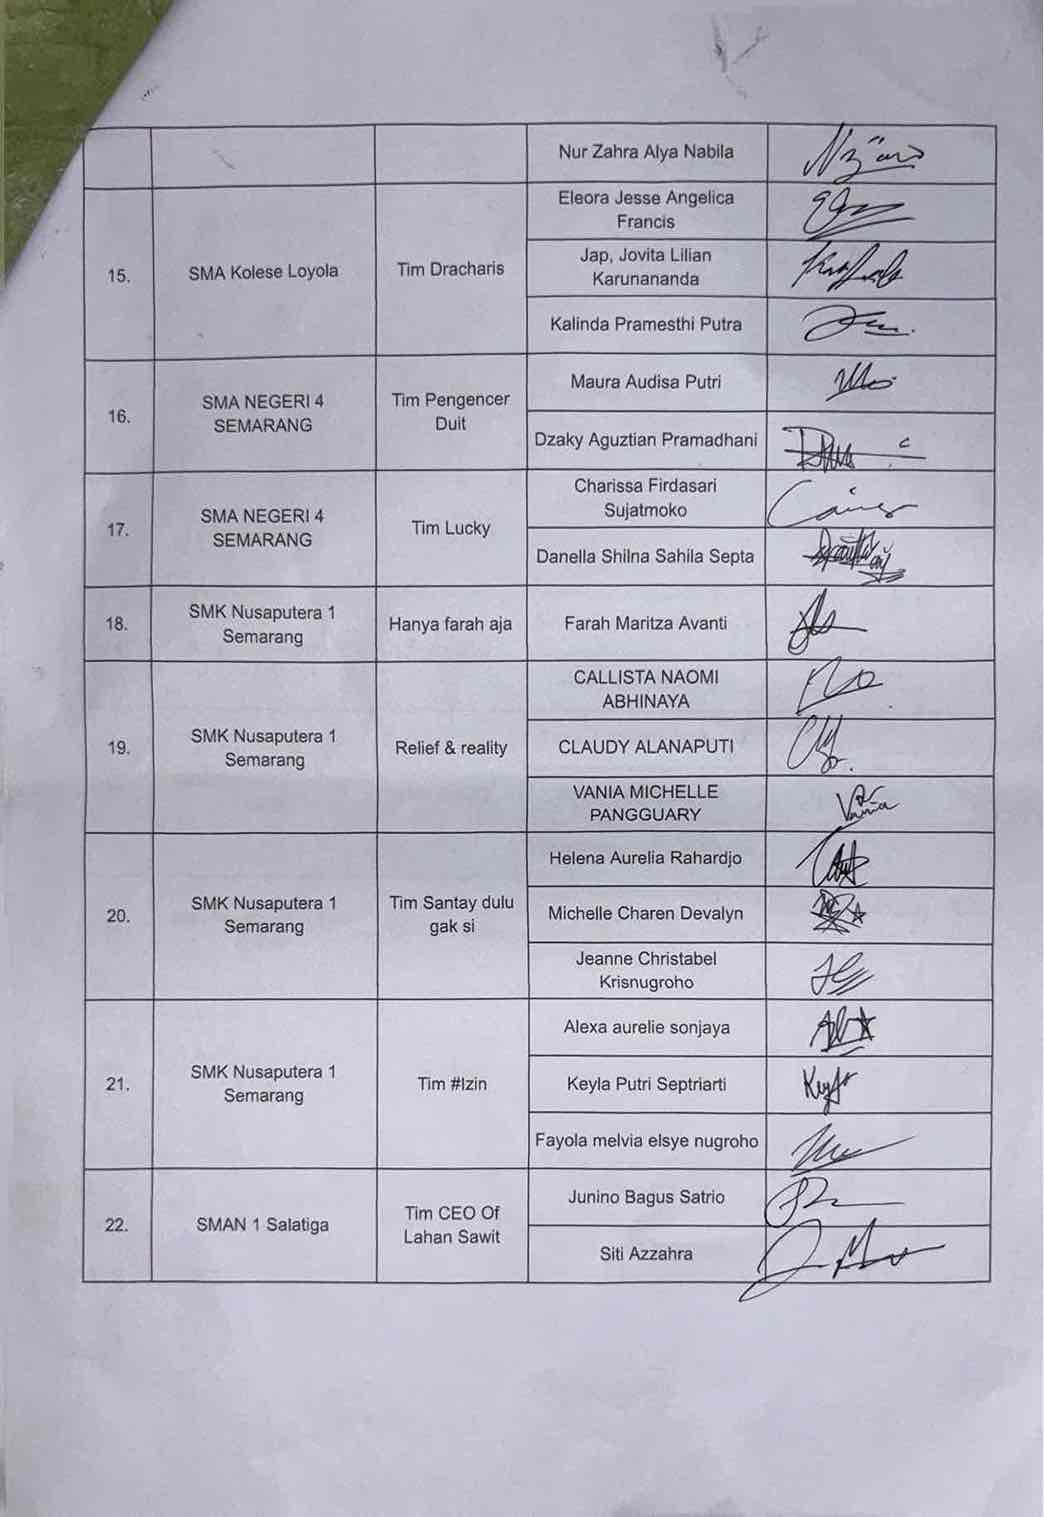 Nur Zahra Alya Nabila
15.
SMA Kolese Loyola
Tim Dracharis
Eleora Jesse Angelica
Francis
Jap, Jovita Lilian
Karunananda
Kalinda Pramesthi Putra
16.
SMA NEGERI 4
SEMARANG
Tim Pengencer
Duit
Maura Audisa Putri
Dzaky Aguztian Pramadhani
17.
SMA NEGERI 4
SEMARANG
Tim Lucky
Charissa Firdasari
Sujatmoko
Danella Shilna Sahila Septa
18.
SMK Nusaputera 1
Semarang
Hanya farah aja
Farah Maritza Avanti
19.
SMK Nusaputera 1
Semarang
Relief & reality
CALLISTA NAOMI
ABHINAYA
CLAUDY ALANAPUTI
VANIA MICHELLE
PANGGUARY
Vania
20.
SMK Nusaputera 1
Semarang
Tim Santay dulu
gak si
Helena Aurelia Rahardjo
Michelle Charen Devalyn
Jeanne Christabel
Krisnugroho
21.
SMK Nusaputera 1
Semarang
Tim #Izin
Alexa aurelie sonjaya
Keyla Putri Septriarti
Fayola melvia elsye nugroho
22.
SMAN 1 Salatiga
Tim CEO Of
Lahan Sawit
Junino Bagus Satrio
Siti Azzahra